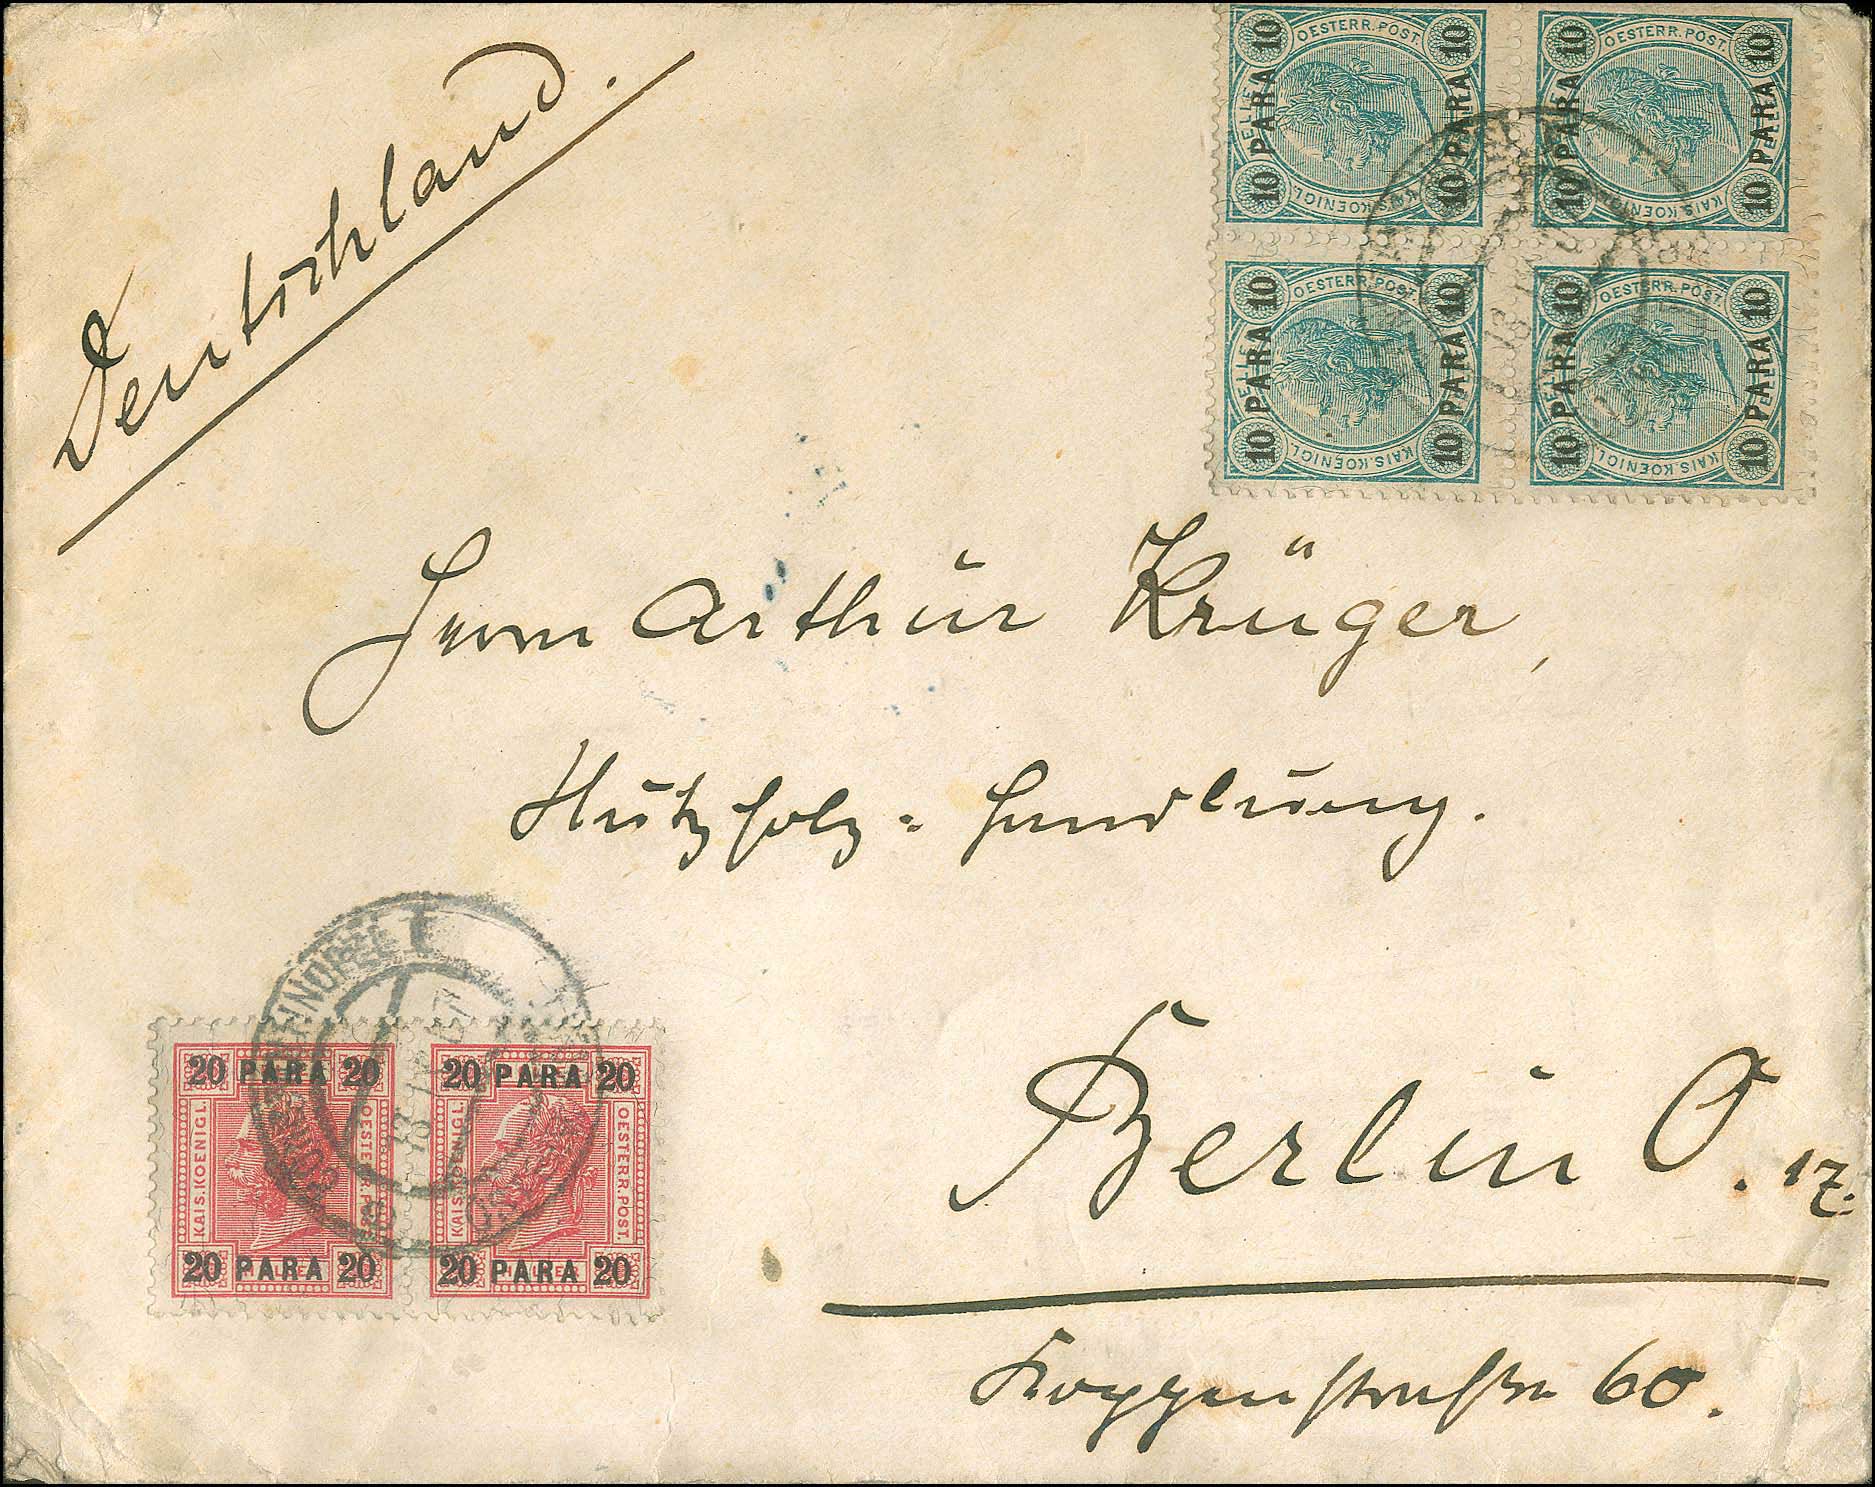 Deutschland.
10 PARA 10 10 PARA 10 OESTERR. POST. KAIS. KOENIGL.
10 PARA 10 10 PARA 10 OESTERR. POST. KAIS. KOENIGL.
10 PARA 10 10 PARA 10 OESTERR. POST. KAIS. KOENIGL.
10 PARA 10 10 PARA 10 OESTERR. POST. KAIS. KOENIGL.
Herrn Arthur Krüger,
Nutzholz-Handlung.
Berlin O. 17.
Koppenstraße 60.
20 PARA 20 20 PARA 20
KAIS. KOENIGL. OESTERR. POST. KAIS. KOENIGL. OESTERR. POST.
20 PARA 20 20 PARA 20